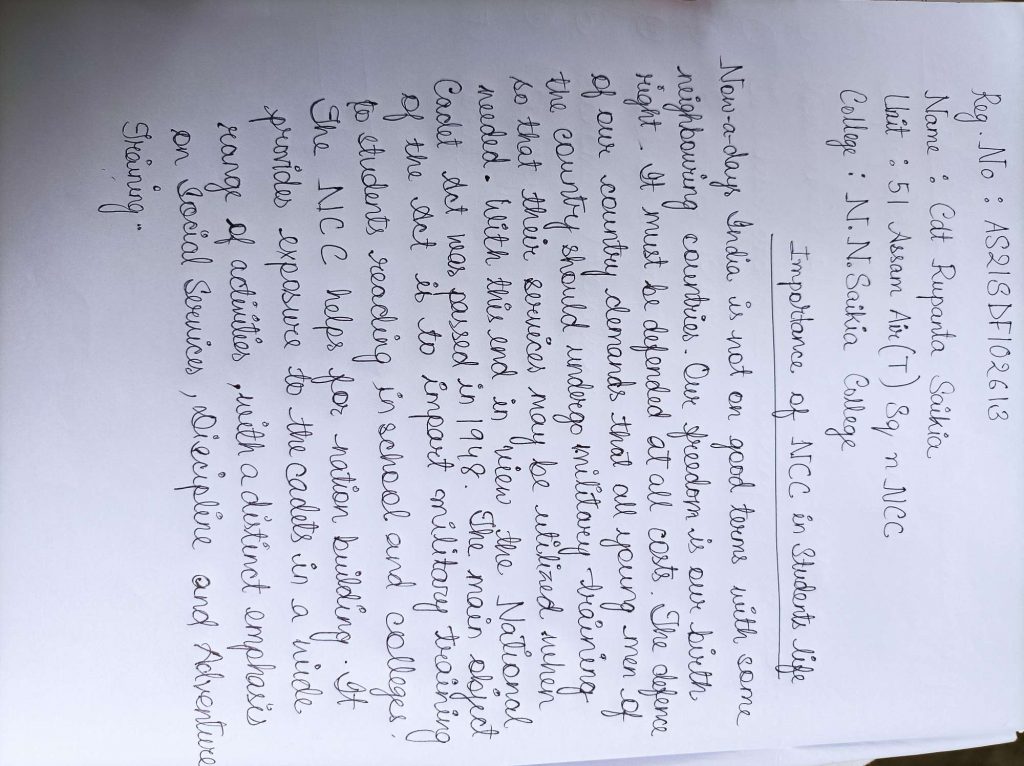 Reg. No : AS21SDF102613
Name : Cdt Rupanta Saikia
Unit : 51 Assam Air(T) Sq n NCC
College : N.N.Saikia College
Importance of NCC in Students life
Now-a-days India is not on good terms with some
neighbouring countries. Our freedom is our birth
right. It must be defended at all costs. The defence
of our country demands that all young men of
the country should undergo military training
so that their services may be utilized when
needed. With this end in view the National
Cadet Act was passed in 1948. The main object
of the Act is to impart military training
to students reading in school and colleges.
The NCC helps for nation building. It
provides exposure to the cadets in a wide
range of activities, with a distinct emphasis
on Social Services, Discipline and Adventure
Training."